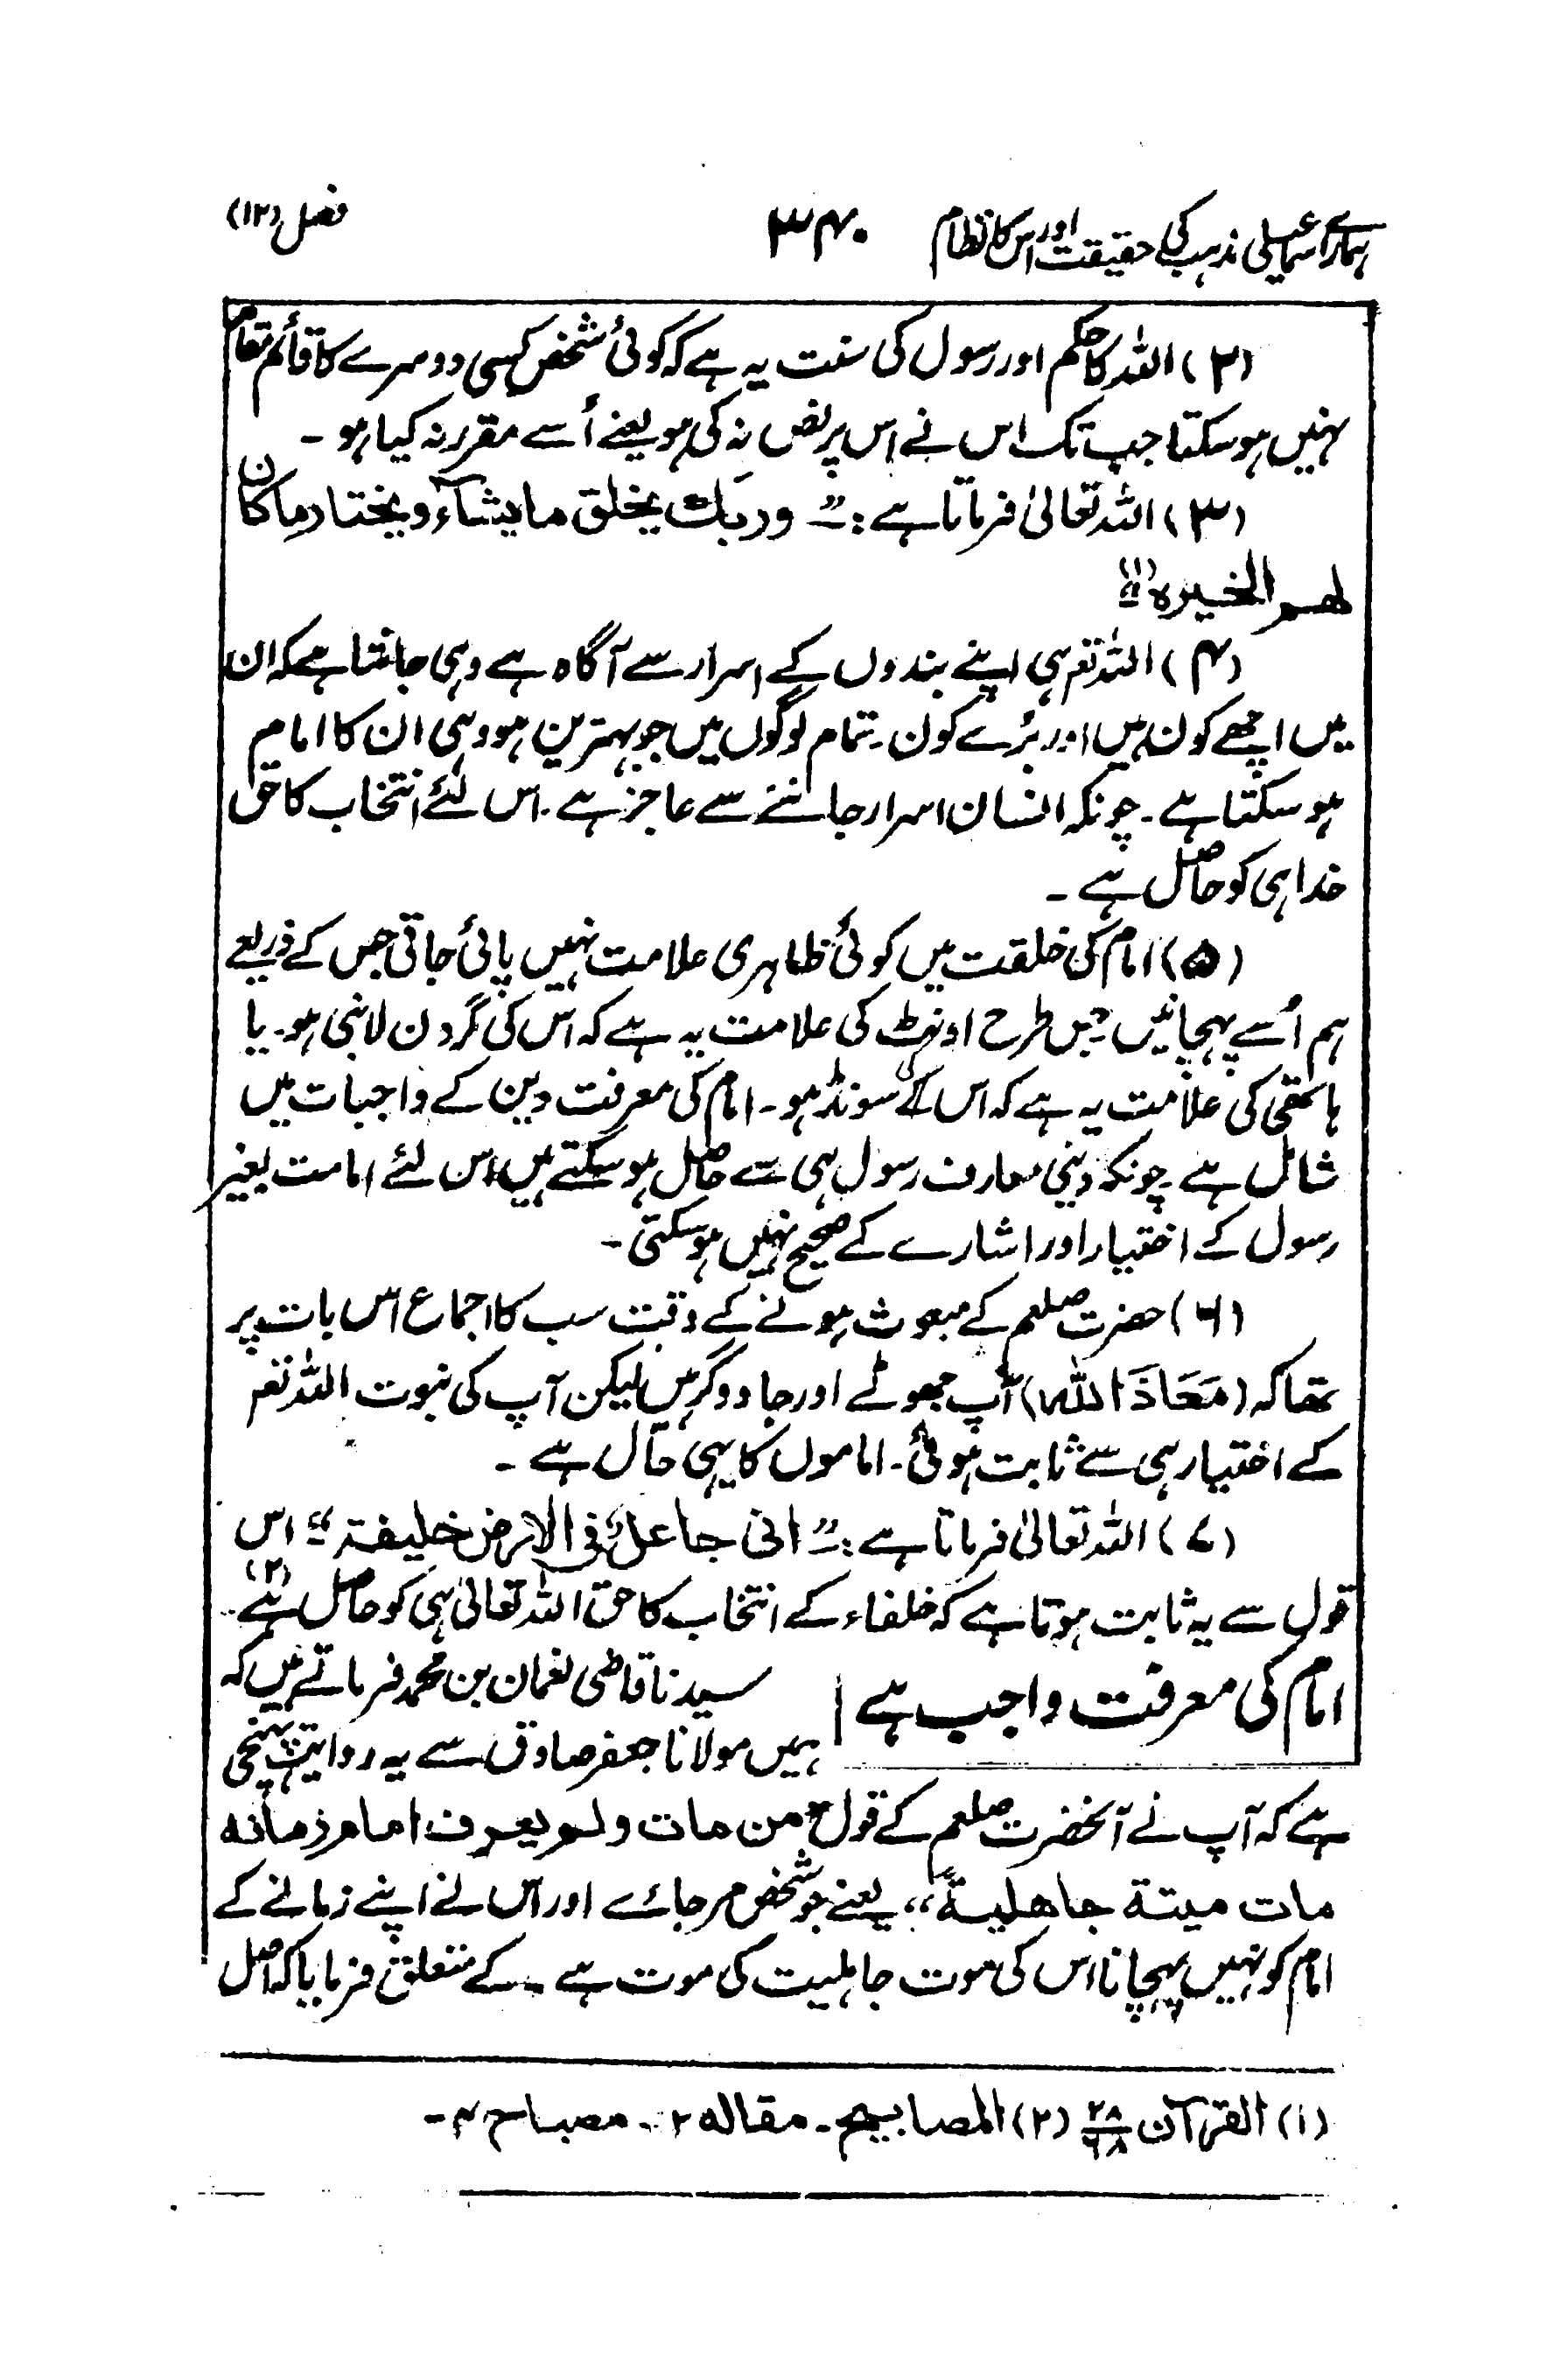 ہمارے اسماعیلی مذہب کی حقیقت اور اس کا نظام ۳۴۰ فصل (۱۲)
(۲) اللہ کا حکم اور رسول کی سنت یہ ہے کہ کوئی شخص کسی دوسرے کا قائم مقام
نہیں ہو سکتا جب تک اس نے اس پر نص نہ کی ہو یعنے اُسے مقرر نہ کیا ہو ۔
(۳) اللہ تعالیٰ فرماتا ہے :۔ " وربک یخلق ما یشآء و یختار ما کان
لھم الخیرہ" (۱)
(۴) اللہ تعہ ہی اپنے بندوں کے اسرار سے آگاہ ہے وہی جانتا ہے کہ ان
میں اچھے کون ہیں اور بُرے کون ۔ تمام لوگوں میں جو بہترین ہو وہی ان کا امام
ہو سکتا ہے ۔ چونکہ انسان اسرار جاننے سے عاجز ہے ۔ اس لئے انتخاب کا حق
خدا ہی کو حاصل ہے ۔
(۵) امام کی خلقت میں کوئی ظاہری علامت نہیں پائی جاتی جس کے ذریعے
ہم اُسے پہچانیں جس طرح اونٹ کی علامت یہ ہے کہ اس کی گردن لانبی ہو ۔ یا
ہاتھی کی علامت یہ ہے کہ اس کے سونڈ ہو ۔ امام کی معرفت دین کے واجبات میں
شامل ہے ۔ چونکہ دینی معارف رسول ہی سے حاصل ہو سکتے ہیں اس لئے امامت بغیر
رسول کے اختیار اور اشارے کے صحیح نہیں ہو سکتی ۔
(۶) حضرت صلعم کے مبعوث ہونے کے وقت سب کا اجماع اس بات پر
تھا کہ (مَعَاذَ اللہ) آپ جھوٹے اور جادوگر ہیں لیکن آپ کی نبوت اللہ تعہ
کے اختیار ہی سے ثابت ہوئی ۔ اماموں کا یہی حال ہے ۔
(۷) اللہ تعالیٰ فرماتا ہے :۔ " انی جاعل فی الارض خلیفۃ " اس
قول سے یہ ثابت ہوتا ہے کہ خلفاء کے انتخاب کا حق اللہ تعالیٰ ہی کو حاصل ہے ۔ (۲)
امام کی معرفت واجب ہے
سیدنا قاضی نعمان بن محمد فرماتے ہیں کہ
ہمیں مولانا جعفر صادق سے یہ روایت پہنچی
ہے کہ آپ نے آنحضرت صلعم کے قول "من مات ولم یعرف امام زمانہ
مات میتة جاھلیة" یعنے جو شخص مر جائے اور اس نے اپنے زمانے کے
امام کو نہیں پہچانا اس کی موت جاہلیت کی موت ہے ۔ کے متعلق فرمایا کہ اصل
(۱) القرآن ۲۸/۶۸ (۲) المصابیح ۔ مقالہ ۲ ۔ مصباح ۴ ۔